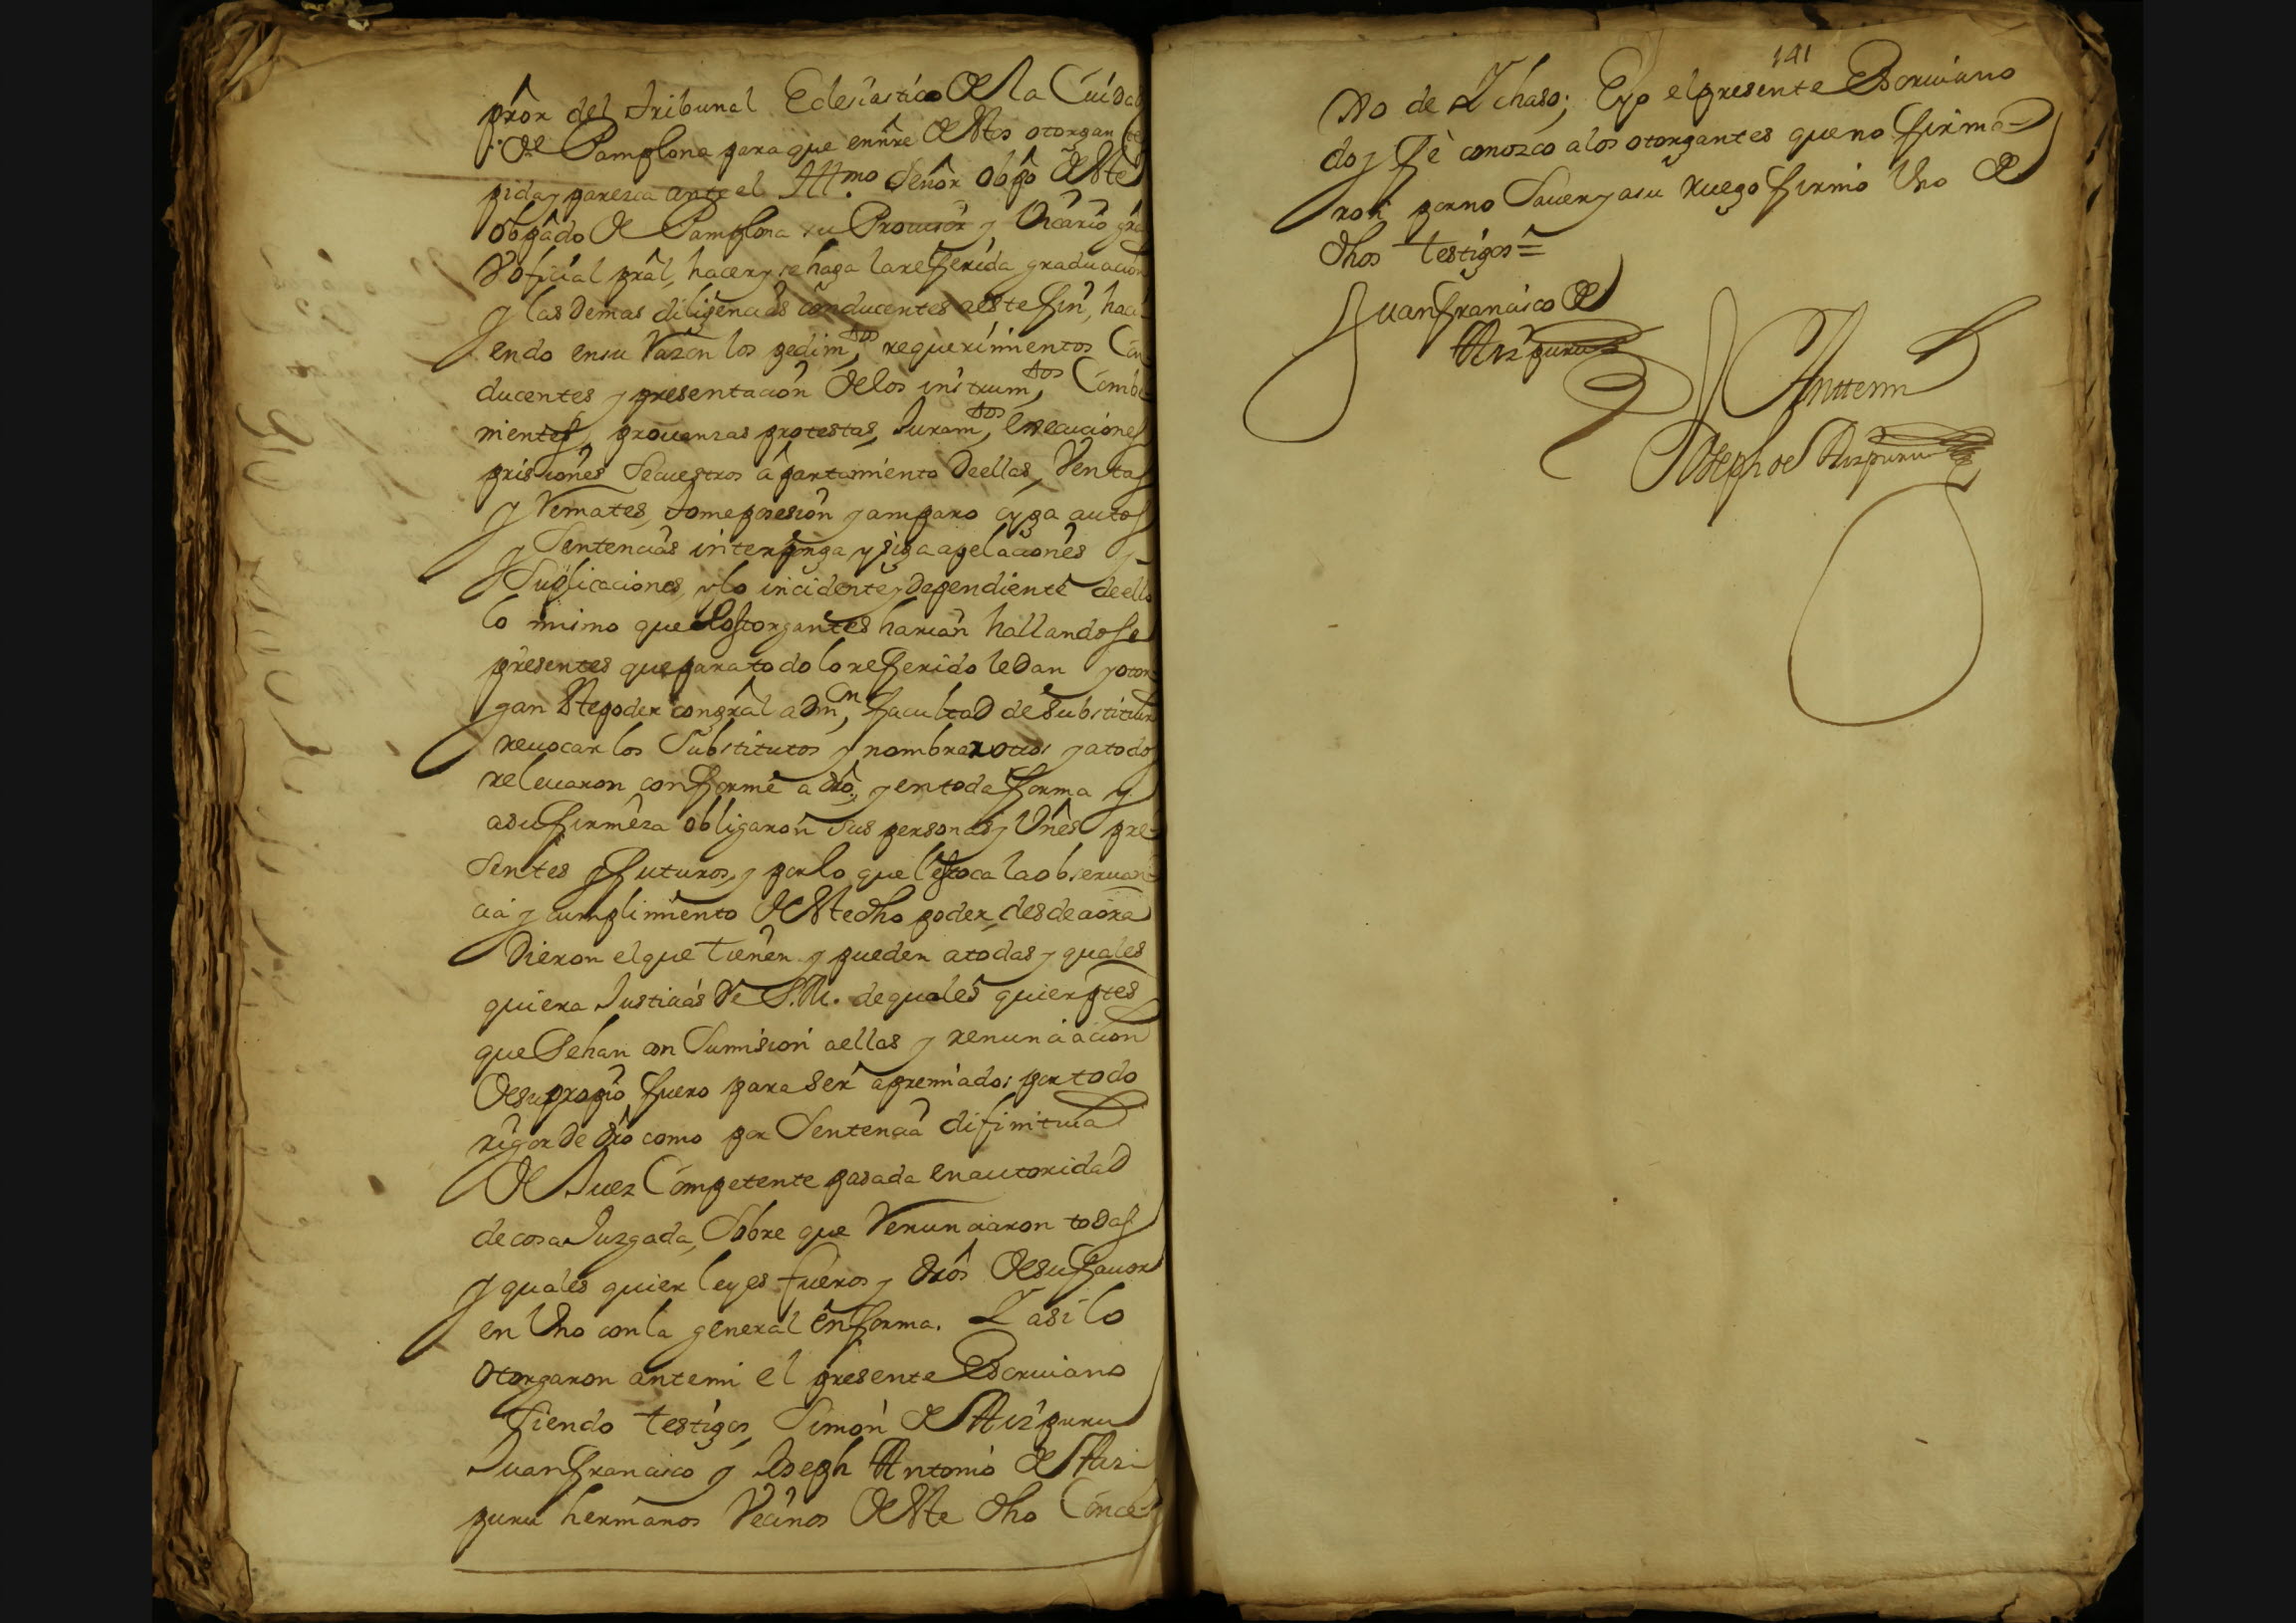 prôr del tribunal Eclesiastico De la Ciudad
De Pamplona para que en nre De estos otorgantes
pida y parezca ante el Illmo Señor Obpo De este
Obpado De Pamplona su Provisor y Vicario gral
V oficial pral, hacer y se haga la referida graduacion
y las demas diligencias conducentes a este fin, haci
endo en su Razon los pedimtos, requerimientos Con
ducentes y presentacion De los instrumtos, Combe
nientes, provanzas protestas, Juramtos, Execuciones
prisiones Secuestros apartamiento De ellas, Ventas
y Remates, tome posesion y amparo oyga autos
y Sentencias interponga y siga apelaciones y
Suplicaciones, y lo incidente y Dependiente de ello
lo mismo que los otorgantes harian hallandose
presentes que para todo lo referido le Dan y otor
gan este poder con gral admn, facultad de Substituir
revocar los Substitutos y nombrar otros y a todos
relevaron conforme a dro, y en toda forma y
a su firmeza obligaron sus personas y Vnes pre-
sentes y futuros, y por lo que les toca la observan
cia y cumplimiento De este dho poder, desde aora
Dieron el que tienen y pueden a todas y quales
quiera Justicias De S.M. de quales quier ptes
que Sehan con Sumision a ellas y renunciacion
De su propio fuero para Ser apremiados por todo
rigor De dro como por Sentencia difinitiva
De Juez Competente pasada en autoridad
de cosa Juzgada, Sobre que Renunciaron todas
y quales quier leyes fueros y dros De su favor
en Vno con la general en forma. Y asi lo
otorgaron ante mi el presente Escrivano
Siendo testigos, Simon De Aizpuru
Juan Francisco y Joseph Antonio De Aiz
puru hermanos Vecinos De este dho Conce
141
No de Ichaso; E yo el presente Escrivano
doy Fè conozco a los otorgantes que no firma
ron por no Saver y a su ruego firmò Vno De
dhos testigos =
Juan Francisco De
Aizpuru
Antemi
Joseph de Aizpuru